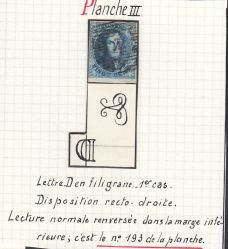 Planche III
VINGT CENTS
D
Lettre D en filigrane _ 1er cas.
Disposition recto-droite.
Lecture normale renversée dans la marge infé-
rieure; c'est le n° 193 de la planche.